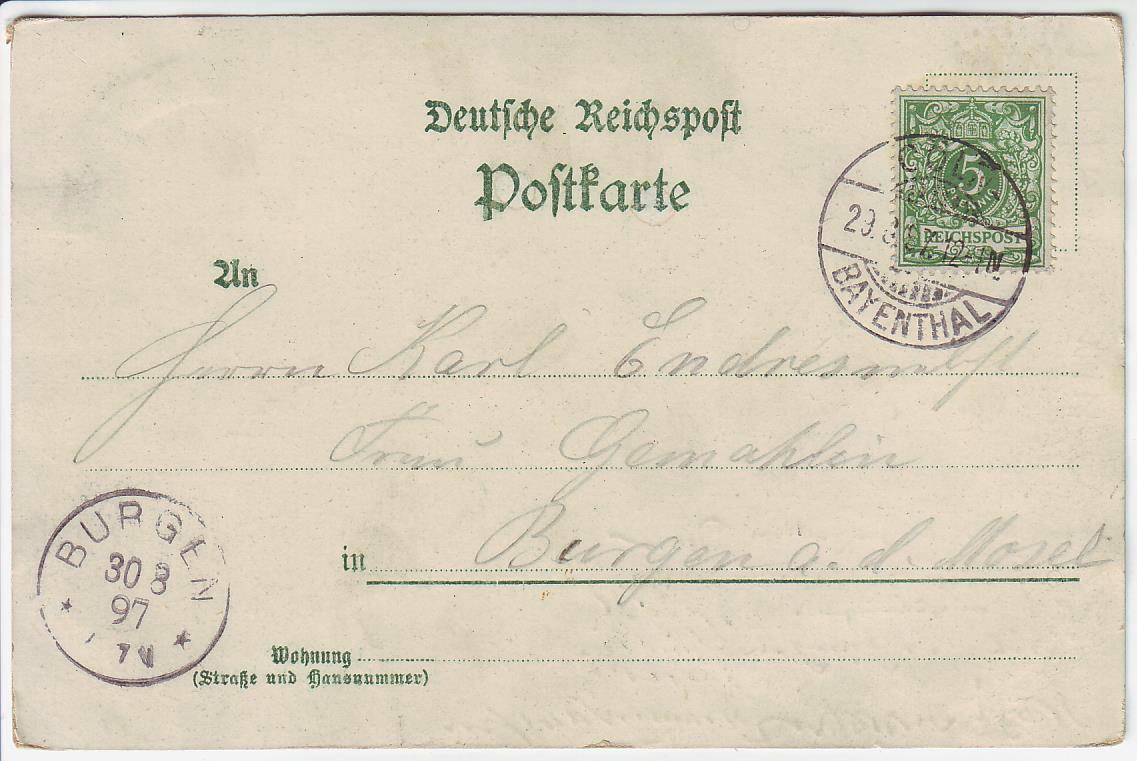 Deutsche Reichspost
Postkarte
5
PFENNIG
REICHSPOST
29. 8. 97. 12-1N
BAYENTHAL
An
Herrn Karl Endres nebst
Frau Gemahlin
in Burgen a. d. Mosel
BURGEN
30 8
97
7 N
Wohnung
(Straße und Hausnummer)